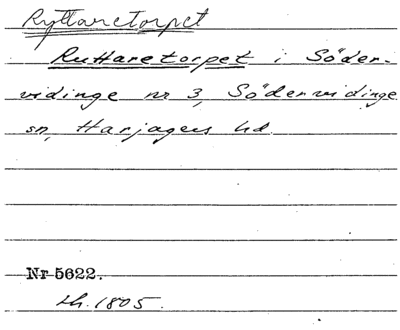 Ryttaretorpet
Ruttaretorpet i Söder-
vidinge nr 3, Södervidinge
sn, Harjagers hd.
Nr 5622.
Lh. 1805.